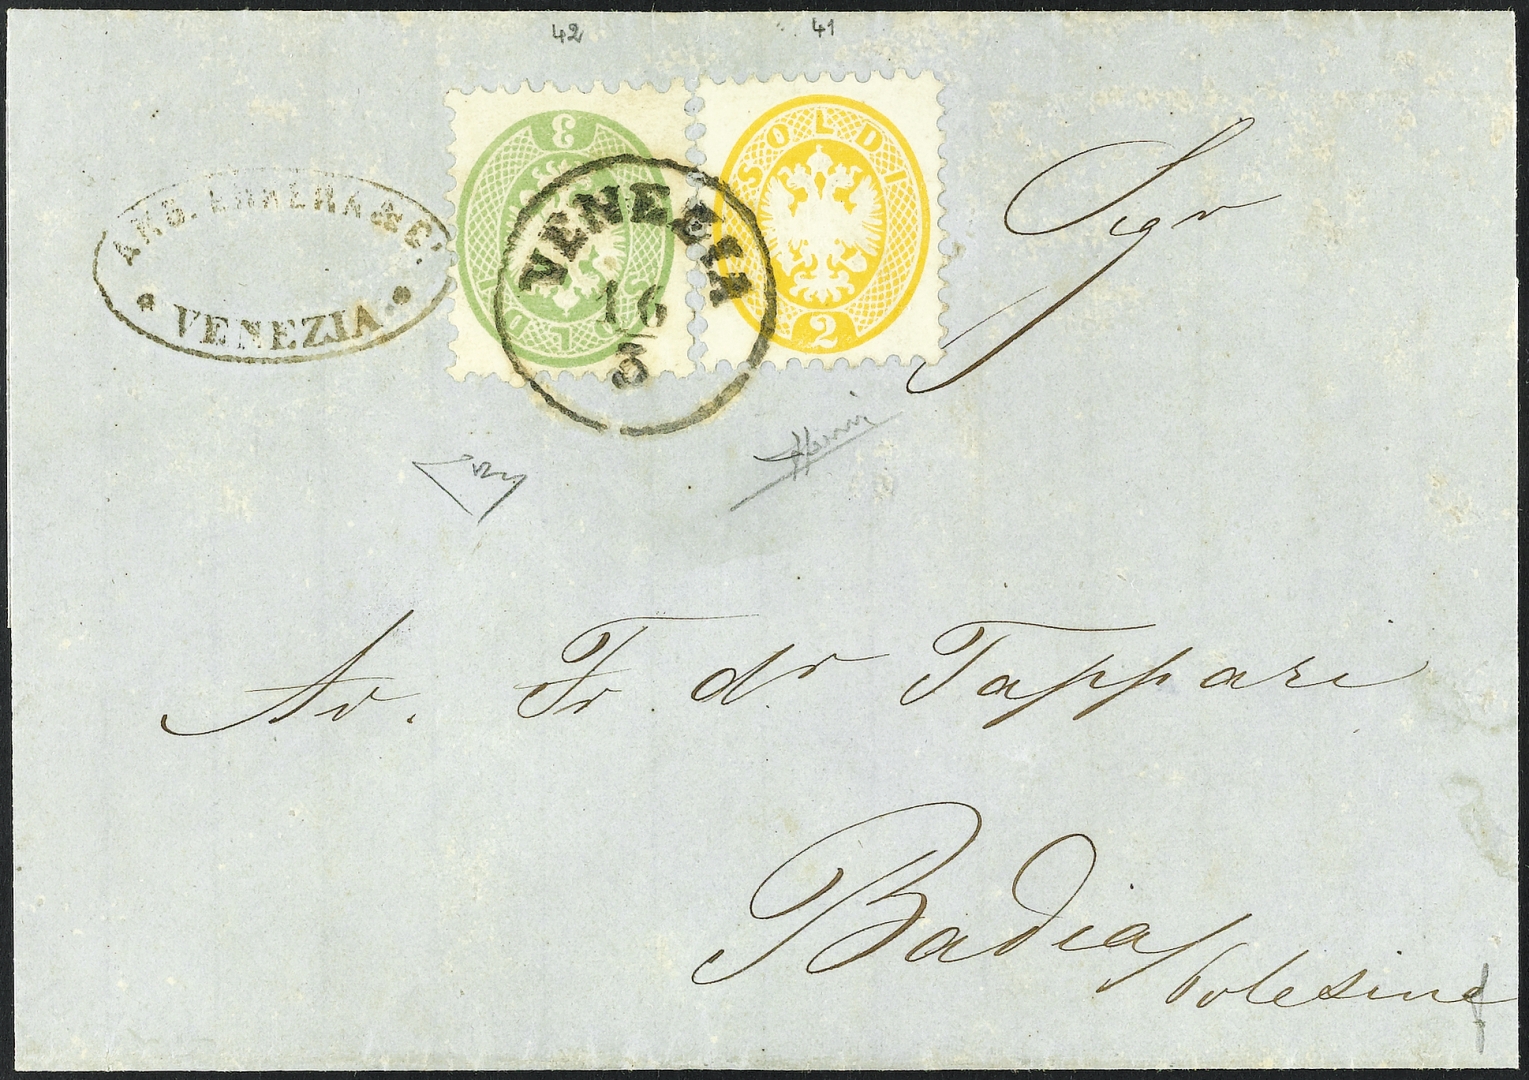 42 41
3 SOLDI
SOLDI 2
VENEZIA
16
3
& C.
VENEZIA
Sigr
Av. Fr dr Tappari
Badia Polesine